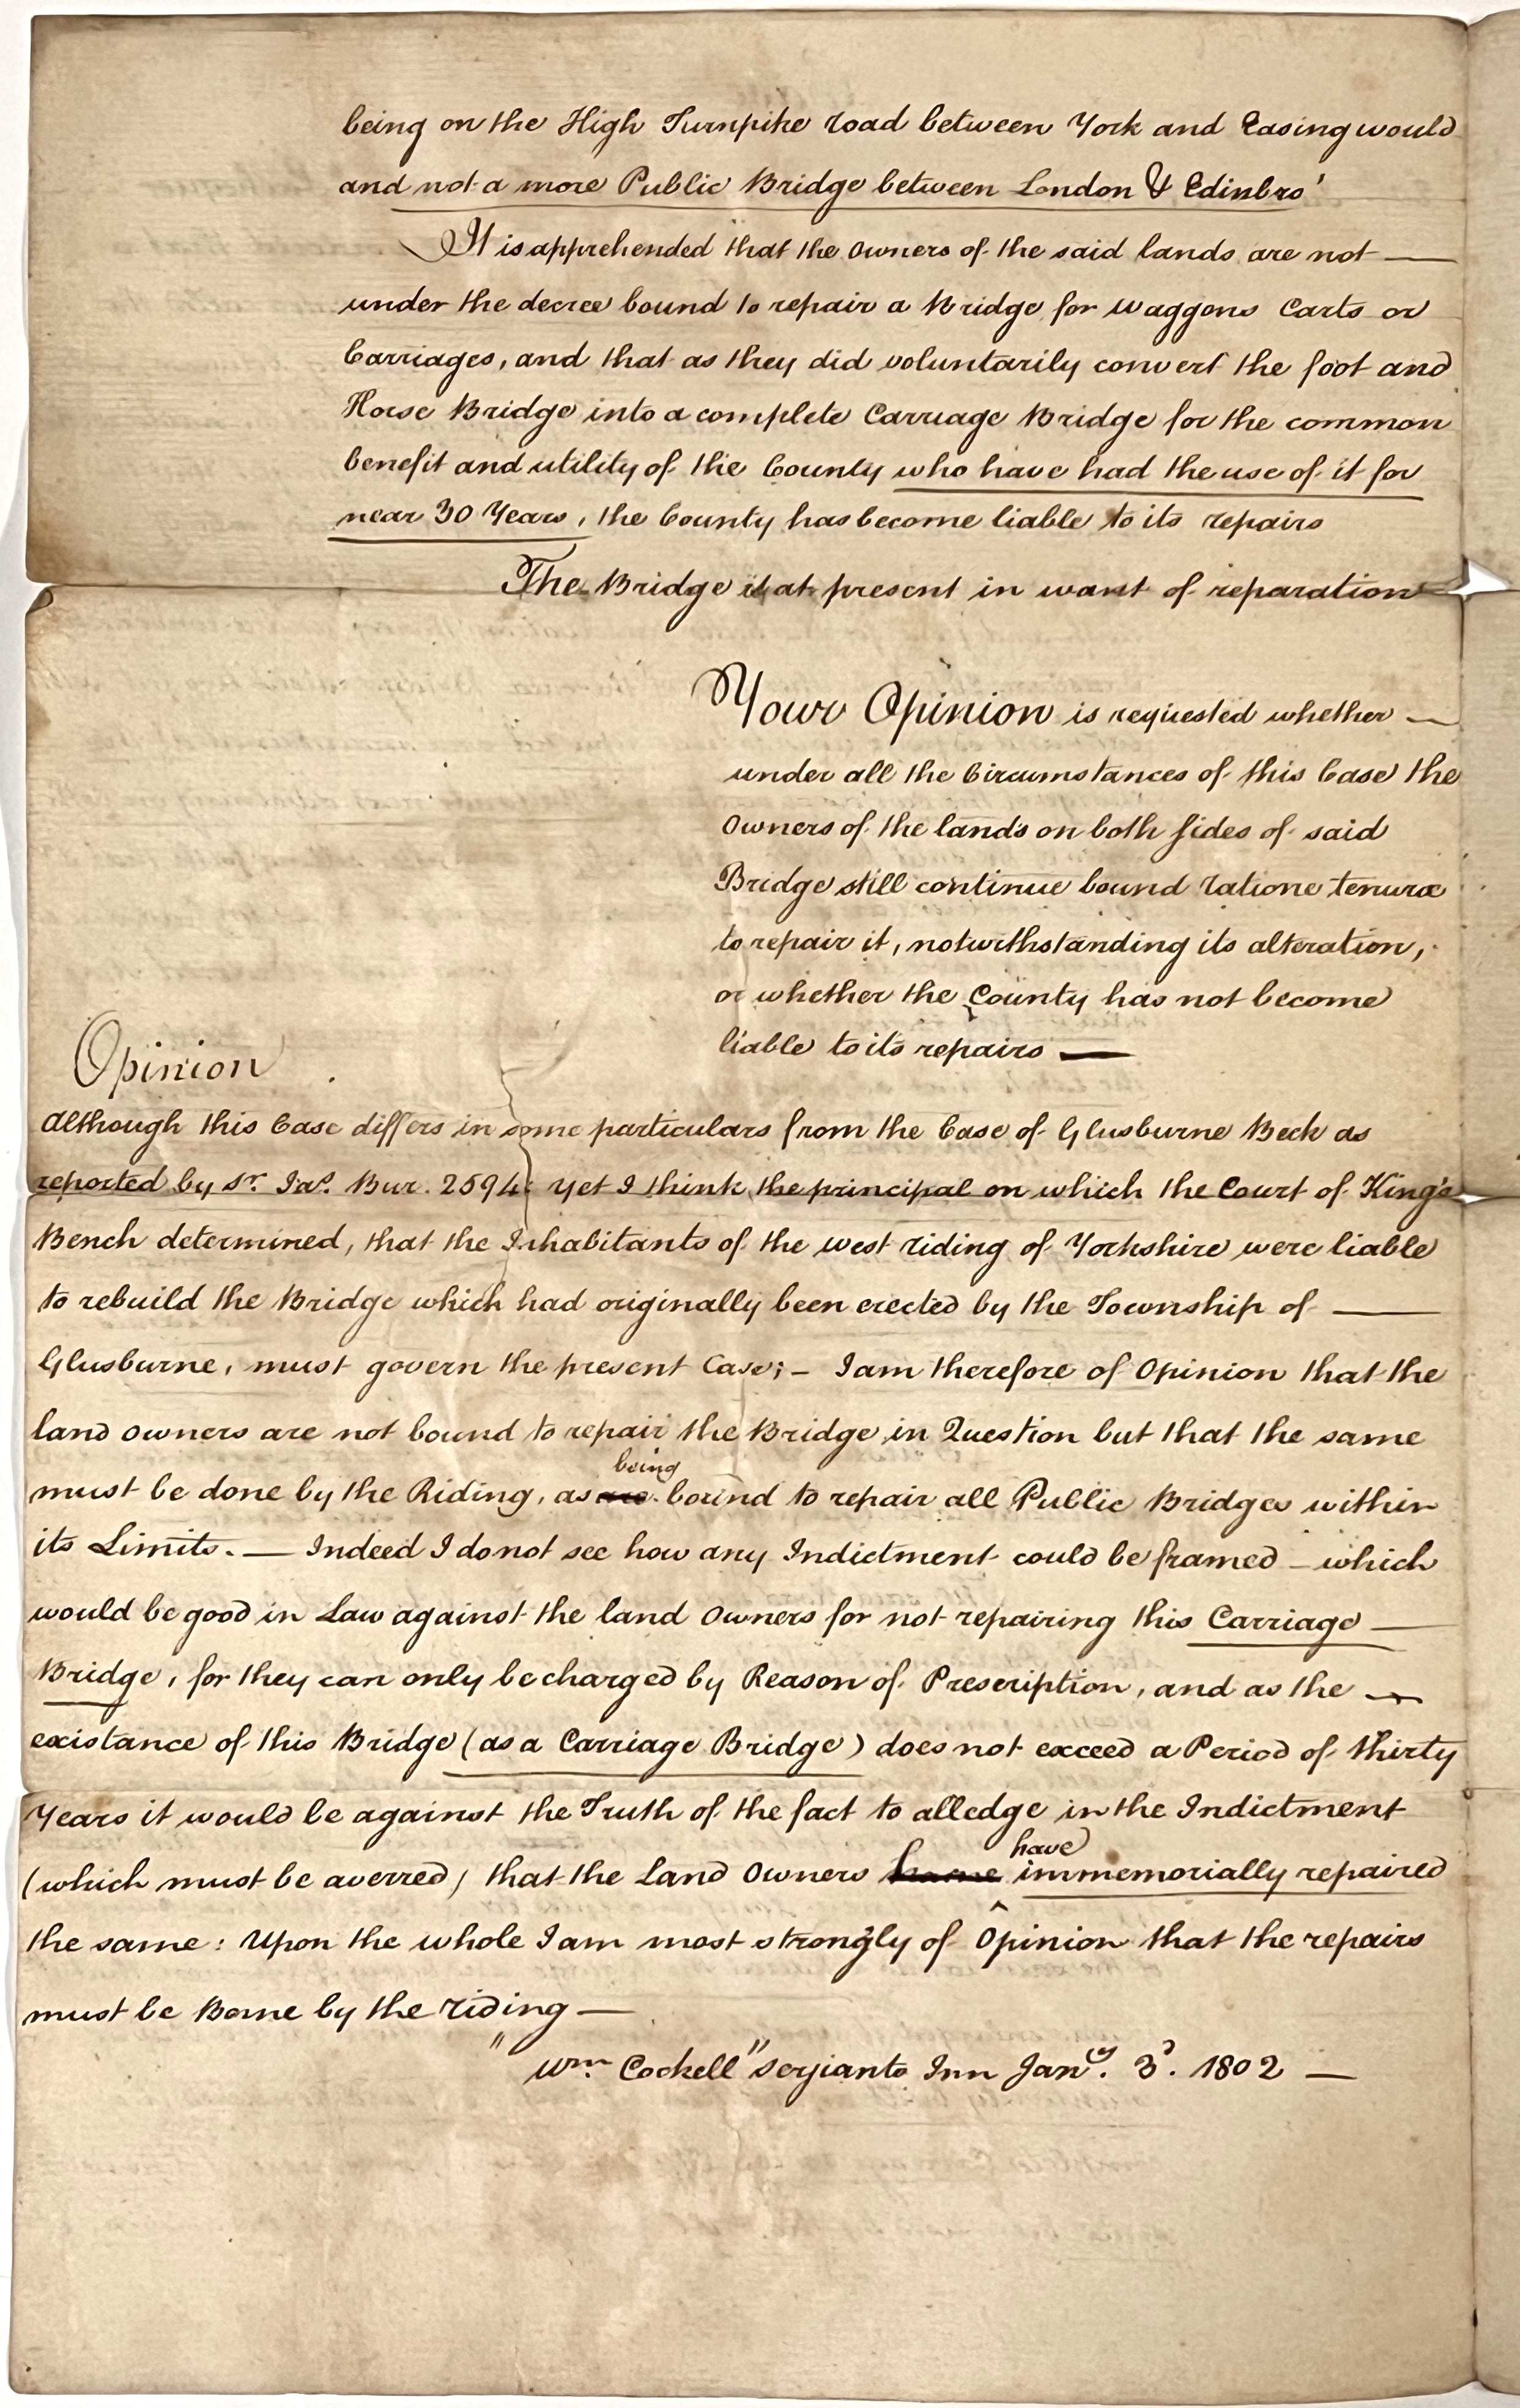 being on the High Turnpike road between York and Easingwould
and not a more Public Bridge between London & Edinbro'
It is apprehended that the Owners of the said lands are not —
under the decree bound to repair a Bridge for Waggons Carts or
Carriages, and that as they did voluntarily convert the foot and
Horse Bridge into a complete Carriage Bridge for the common
benefit and utility of the County who have had the use of it for
near 30 Years, the County has become liable to its repairs
The Bridge is at present in want of reparation
Your Opinion is requested whether —
under all the Circumstances of this Case the
Owners of the lands on both sides of said
Bridge still continue bound ratione tenuræ
to repair it, notwithstanding its alteration,
or whether the County has not become
liable to its repairs —
Opinion
Although this Case differs in some particulars from the Case of Glusburne Beck as
reported by Sr. Jas. Bur. 2594: yet I think the principal on which the Court of King's
Bench determined, that the Inhabitants of the west riding of Yorkshire were liable
to rebuild the Bridge which had originally been erected by the Township of —
Glusburne, must govern the present Case; – I am therefore of Opinion that the
land owners are not bound to repair the Bridge in Question but that the same
being
must be done by the Riding, as are bound to repair all Public Bridges within
its Limits. — Indeed I do not see how any Indictment could be framed – which
would be good in Law against the land Owners for not repairing this Carriage —
Bridge, for they can only be charged by Reason of Prescription, and as the —
existance of this Bridge (as a Carriage Bridge) does not exceed a Period of thirty
Years it would be against the Truth of the fact to alledge in the Indictment
have
(which must be averred) that the Land Owners immemorially repaired
the same: Upon the whole I am most strongly of Opinion that the repairs
must be Borne by the riding —
"Wm. Cockell" Serjiants Inn Jany. 3d. 1802 —